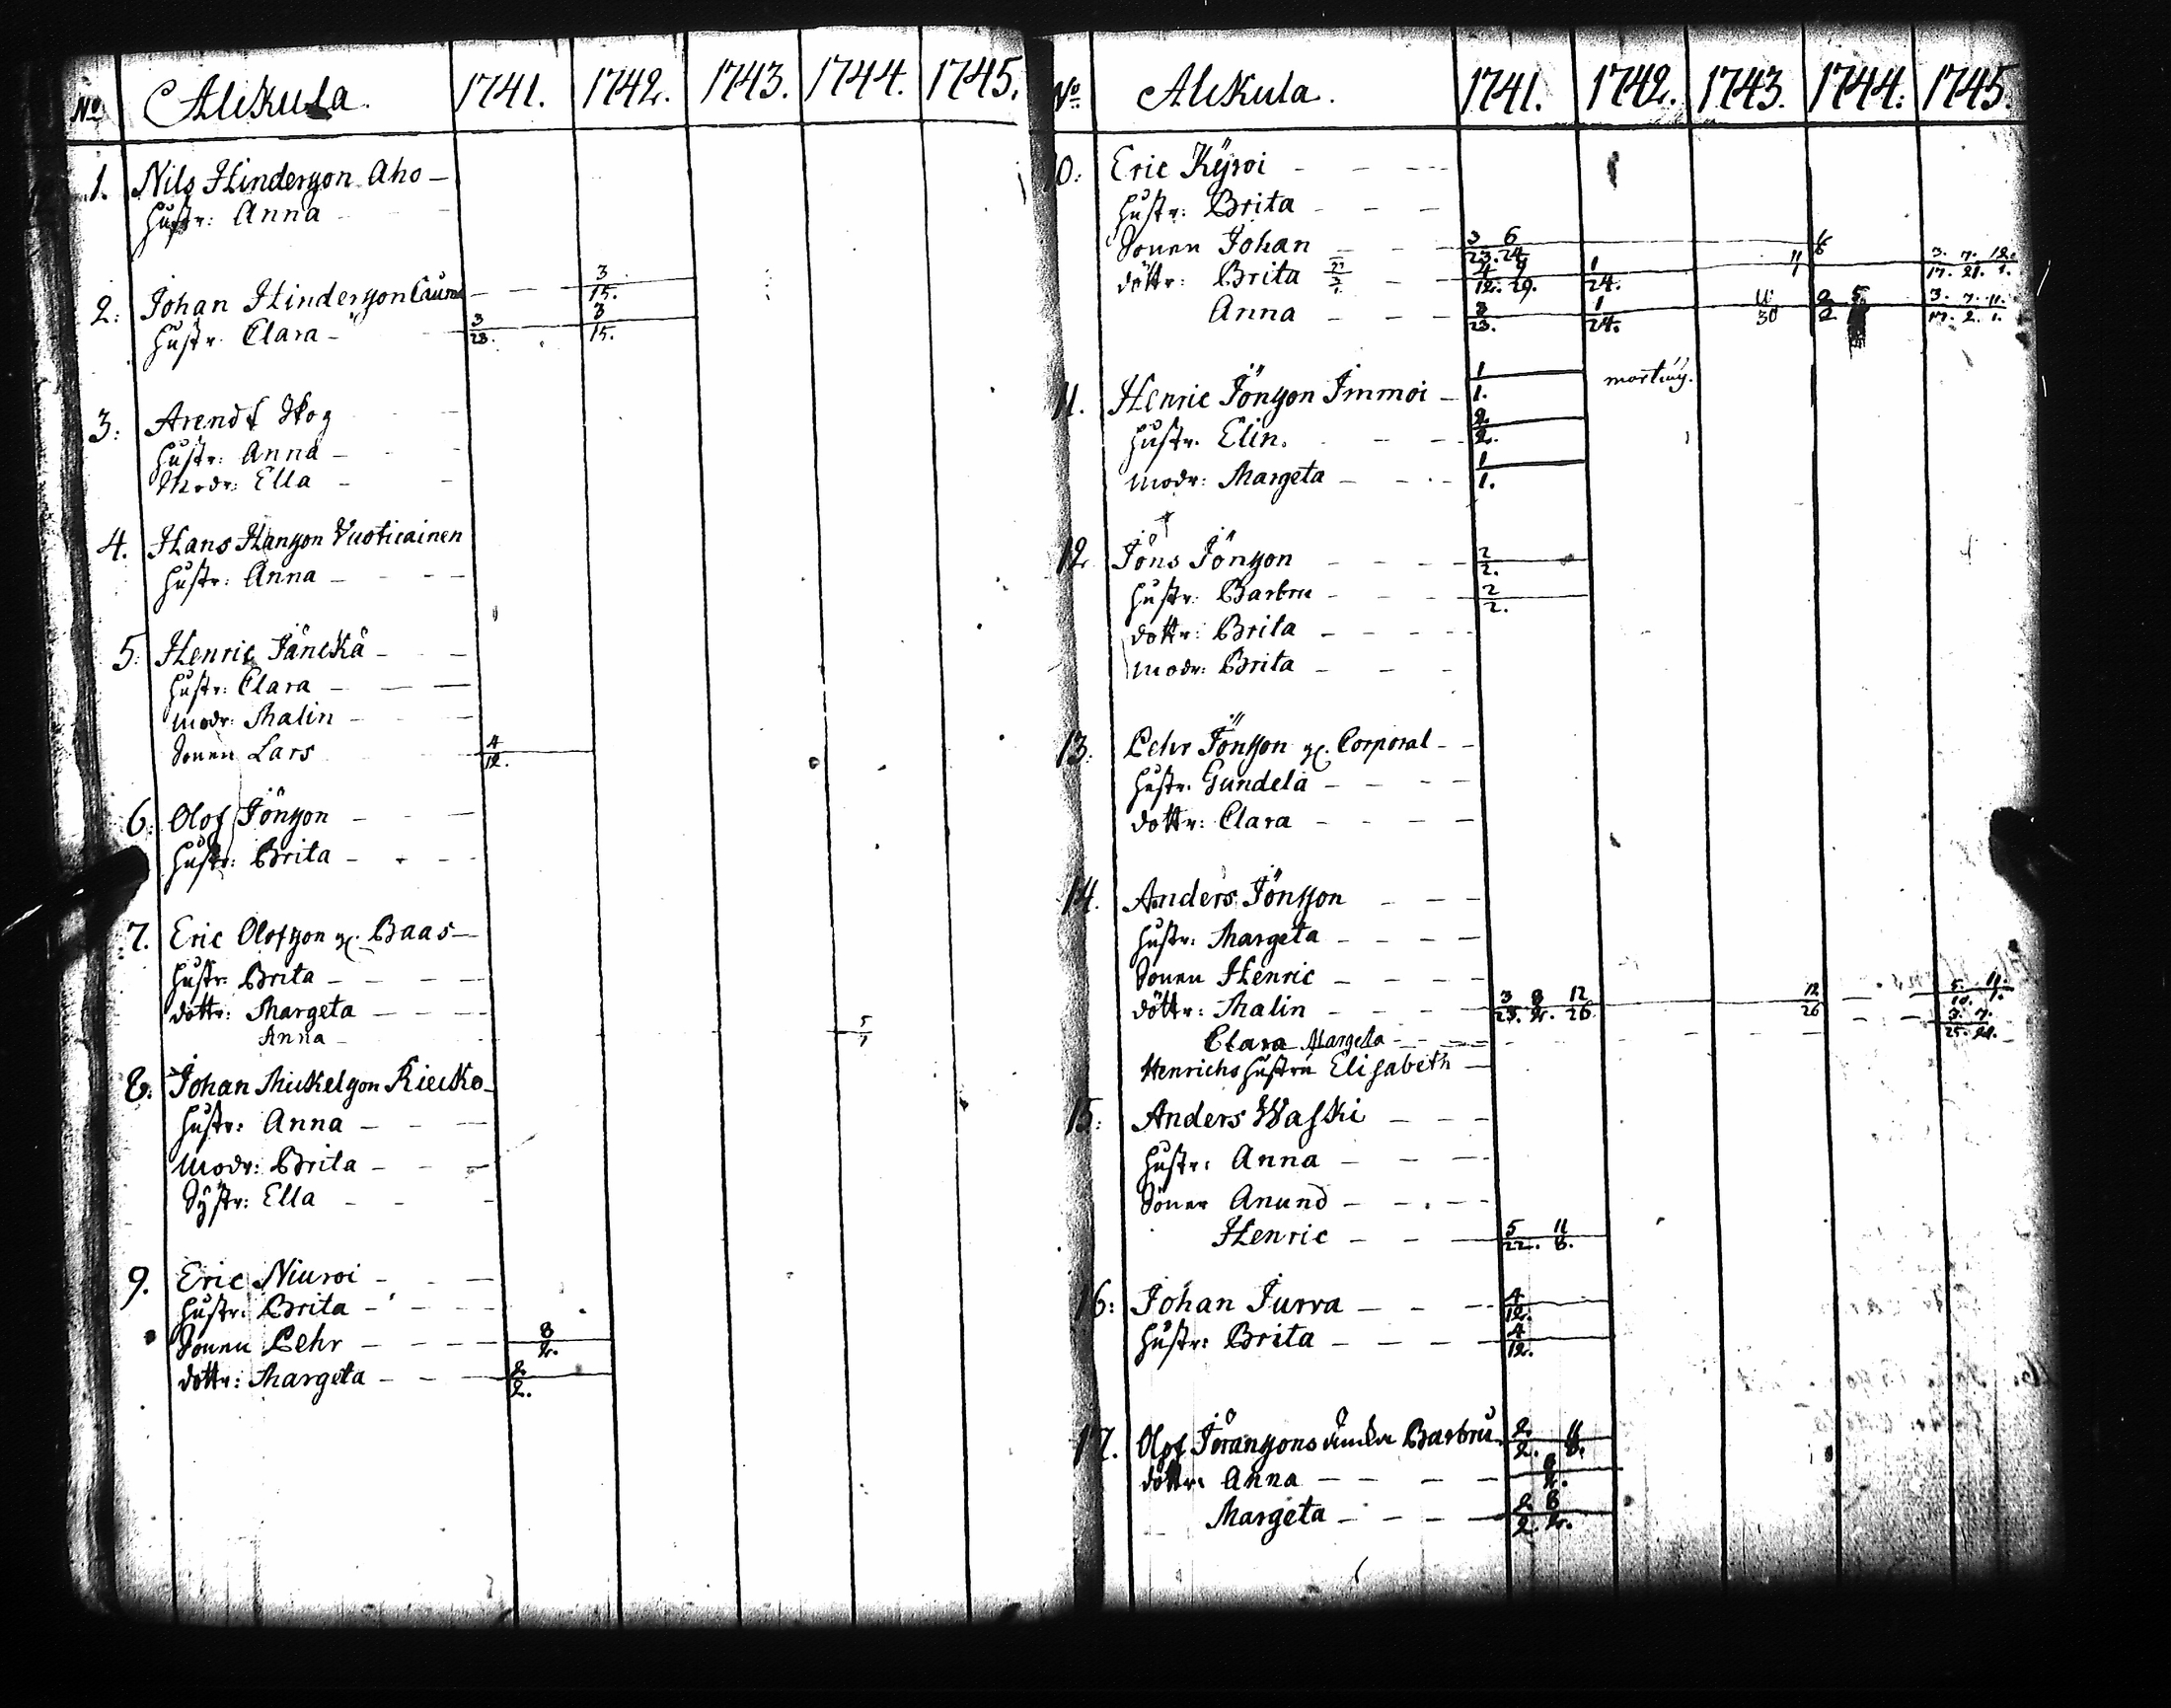 No Alikula. 1741. 1742. 1743. 1744. 1745.
1. Nils Hindersson Aho
Hustr: Anna
2. Johan Hindersson 3/15.
Hustr. Clara 3/23. 3/15.
3. Arendt Skog
Hustr: Anna
Modr: Ella
4. Hans Hansson Vuoticainen
Hustr: Anna
5. Henric Jänckä
Hustr: Clara
Modr: Malin
Sonen Lars 4/12.
6. Olof Jönsson
Hustr: Brita
7. Eric Olofsson Baas
Hustr: Brita
dottr: Margeta
Anna 5/1
8. Johan Mickelsson Riecko
Hustr: Anna
Modr: Brita
Systr: Ella
9. Eric Niuroi
Hustr: Brita
Sonen Pehr 8/2.
dottr: Margeta 2/2.
No Alikula. 1741. 1742. 1743. 1744. 1745.
10: Eric Kÿroi
Hustr: Brita
Sonen Johan 3/23. 6/24 3/17. 7/21. 12/1.
döttr: Brita 4/12. 9/29. 1/24.
Anna 3/23. 1/24. 11/30 3/17. 7/2. 11/1.
11. Henric Jönsson Immoi 1/1.
Hustr. Elin. 2/2.
Modr: Margeta 1/1.
12 Jöns Jönsson 2/2.
Hustr: Barbru 2/2.
dottr: Brita
Modr: Brita
13. Pehr Jönsson Corporal
Hustr. Gundela
dottr: Clara
14. Anders Jönsson
Hustr: Margeta
Sonen Henric
döttr: Malin 3/23. 8/2. 12/26. 12/26
Clara Margeta
Henrichs hustru Elisabeth
15. Anders Waski
Hustr: Anna
Söner Anund
Henric 5/22. 11/8.
16: Johan Jurva 4/12.
Hustr: Brita 4/12.
17. Olof Jöransons Barbru 2/2. 11/8.
döttr: Anna 8/2.
Margeta 2/2. 8/2.